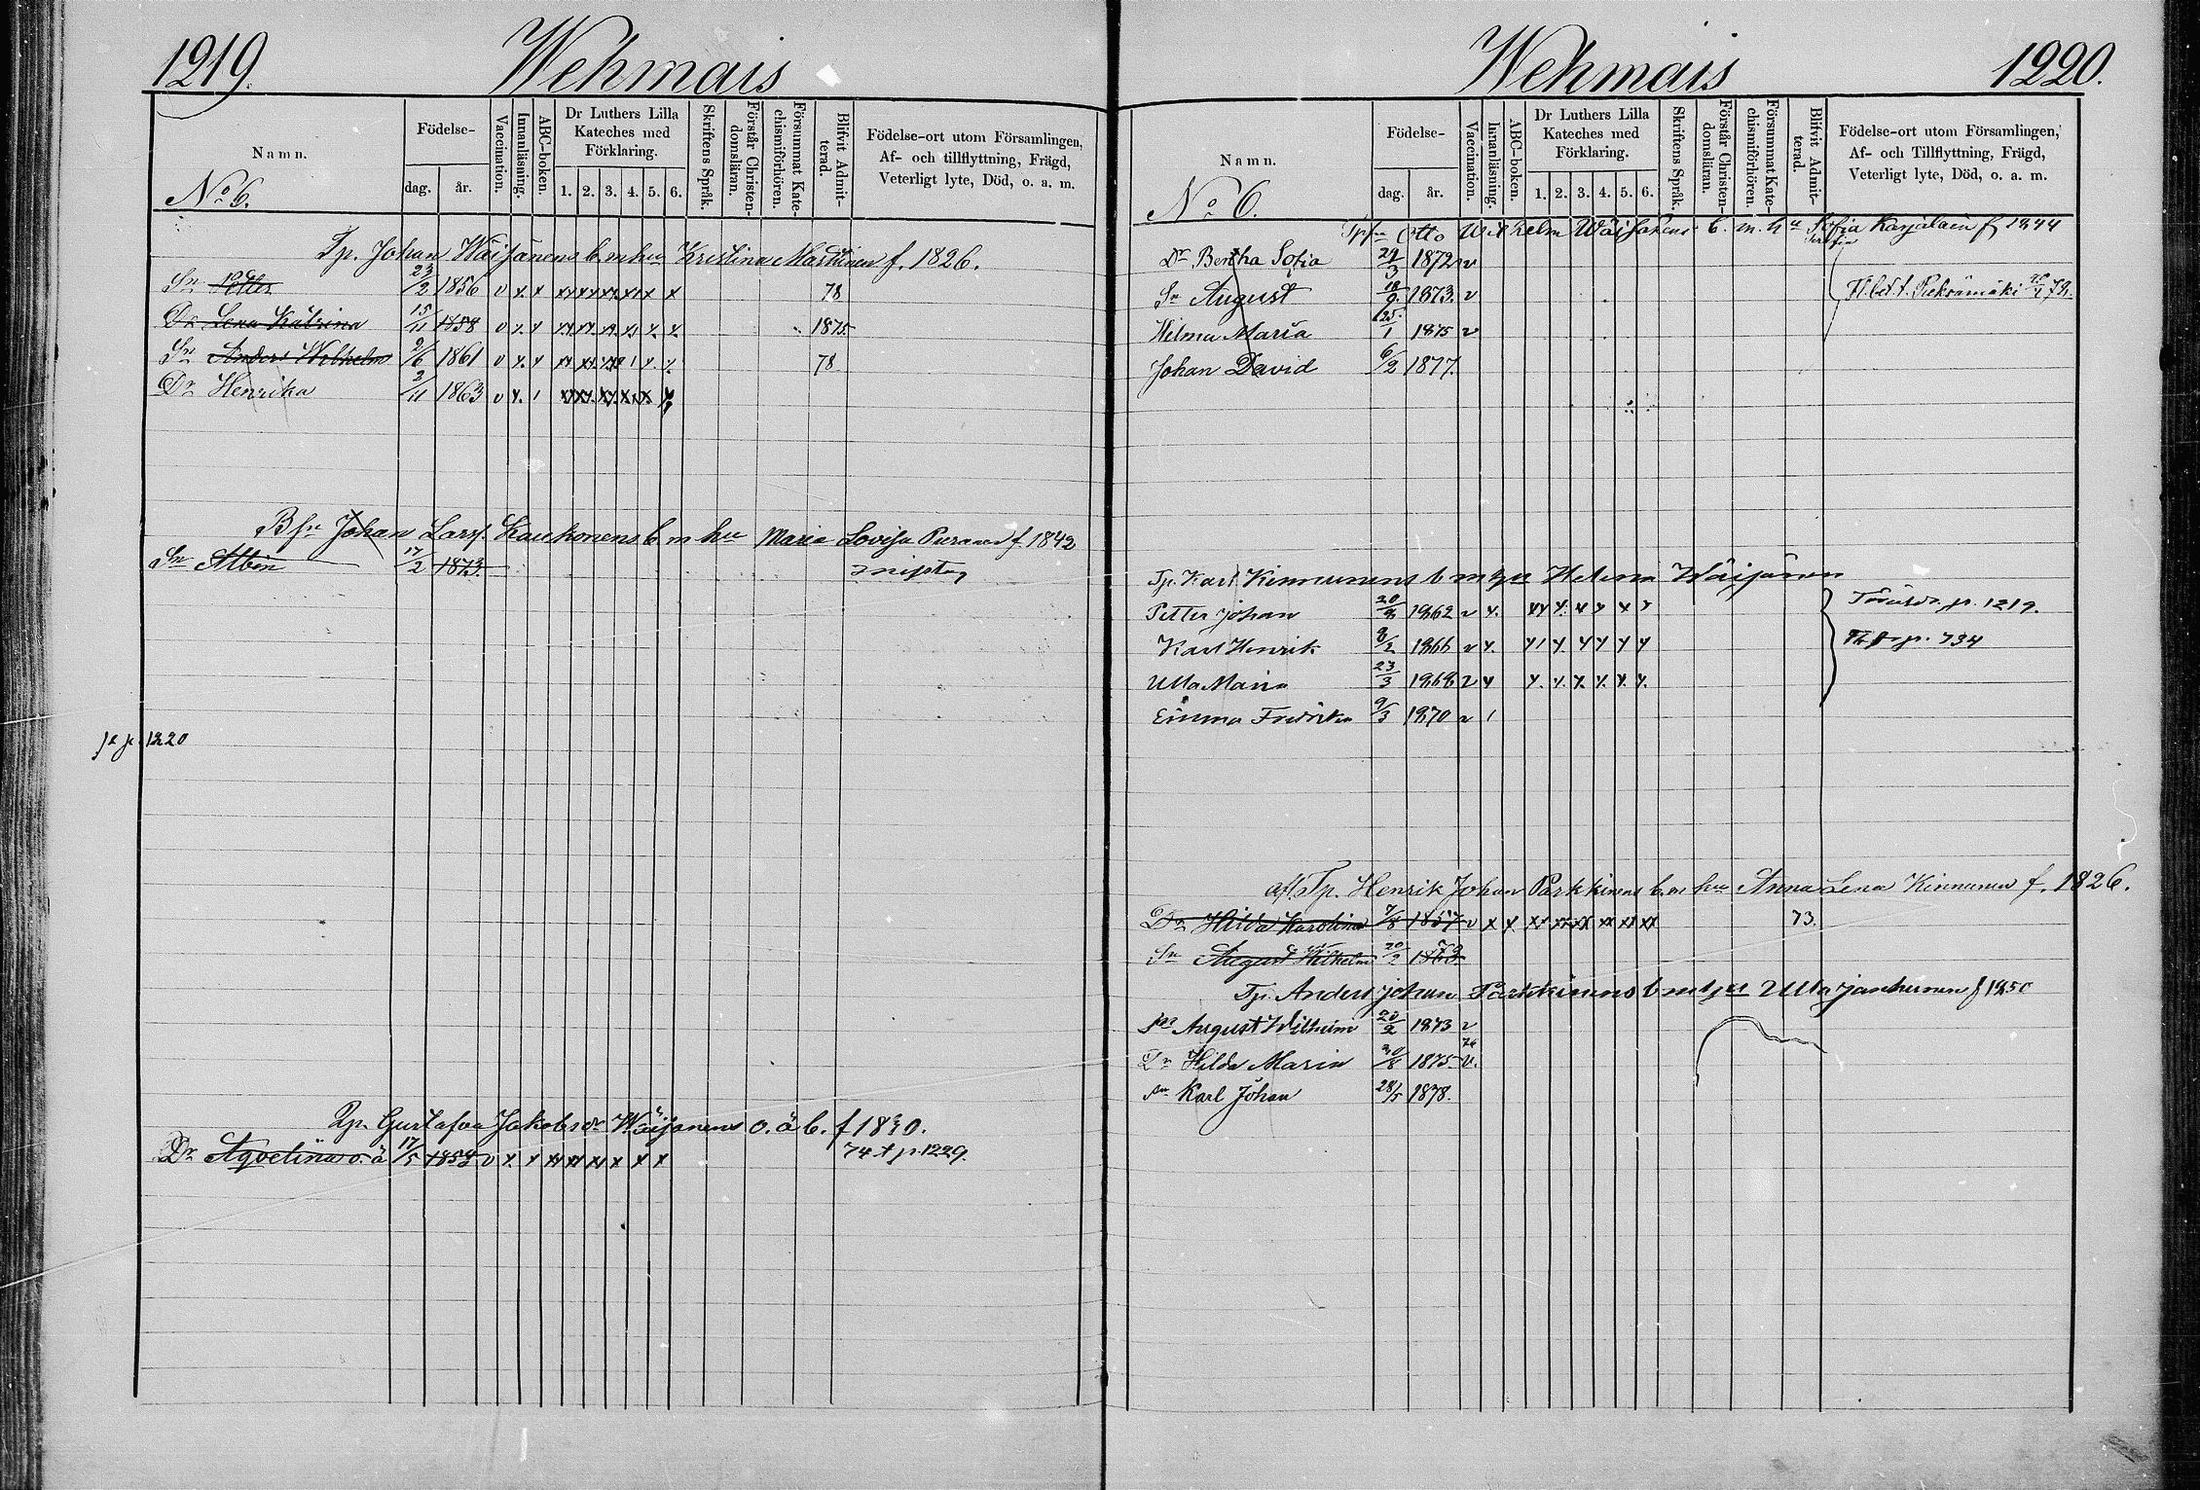 1219.
Wehmais
Namn.
Födelse-
dag.
år.
Vaccination.
Innanläsning.
ABC-boken.
Dr Luthers Lilla
Kateches med
Förklaring.
1. 2. 3. 4. 5. 6.
Skriftens Språk.
Förstår Christen-
domsläran.
Försummat Kate-
chismiförhören.
Blifvit Admit-
terad.
Födelse-ort utom Församlingen,
Af- och tillflyttning, Frägd,
Veterligt lyte, Död, o. a. m.
No 6.
Tp. Johan Wäisänens b. m. hu Kristina Martinen f. 1826.
Sn Petter 23/2 1856 v x x 78
Dr Lena Katrina 15/11 1858 v x x 1875
Sn Anders Wilhelm 9/6 1861 v x x 78
Dr Henrika 2/11 1863 v x
Bfn Johan Larss. Kaukonens b m hu Maria Lovisa f. 1842
Sn Albin 17/2 1873.
p. 1220
Gustafva Jakobsdr Wäisänens o. ä b. f 1830.
Dr o. ä 17/5 1854 v x x 74 p. 1229.
Wehmais
1220.
Namn.
Födelse-
dag.
år.
Vaccination.
Innanläsning.
ABC-boken.
Dr Luthers Lilla
Kateches med
Förklaring.
1. 2. 3. 4. 5. 6.
Skriftens Språk.
Förstår Christen-
domsläran.
Försummat Kate-
chismiförhören.
Blifvit Admit-
terad.
Födelse-ort utom Församlingen,
Af- och Tillflyttning, Frägd,
Veterligt lyte, Död, o. a. m.
No 6.
Otto Wilhelm Wäisänens b. m. hu Sofia Karjalain f 1844
Dr Bertha Sofia 29/3 1872 v
Sn August 18/9 1873. v Fl. bet. t. Pieksämäki 78.
Wilma Maria 25/1 1875 v
Johan David 6/2 1877.
Tp. Karl Kinnunens b m hu Helena Wäisänen
Petter Johan 20/9 1862 v x. p. 1219.
Karl Henrik 8/2 1866 v x. p. 734
Ulla Maria 23/3 1868 v x
Emma Fredrika 9/3 1870 v 1
afl. Tp. Henrik Johan Parkkinens b. m hu Anna Lena Kinnunen f. 1826.
Dr Hilda Karolina 7/8 1857 v x x 73.
Sn August Wilhelm 20/2
Tp. Anders Johan Parkkinens b m hu Ulla f 1850
Sn August Wilhelm 20/2 1873 v
Dr Hilda Maria 30/8 1875 v. 76
Sn Karl Johan 28/5 1878.